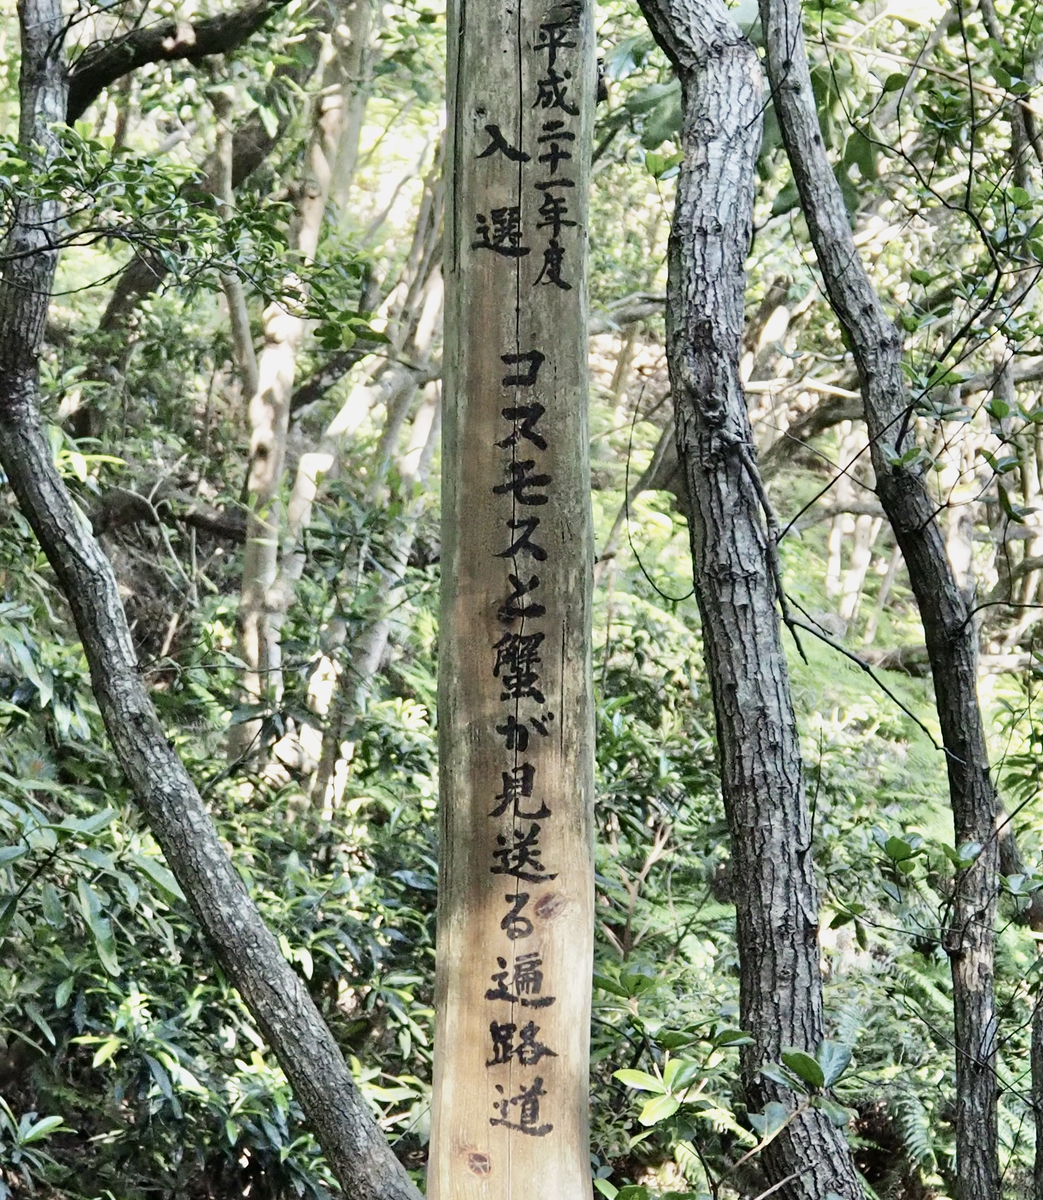 平成二十一年度
入選
コスモスと蟹が見送る遍路道